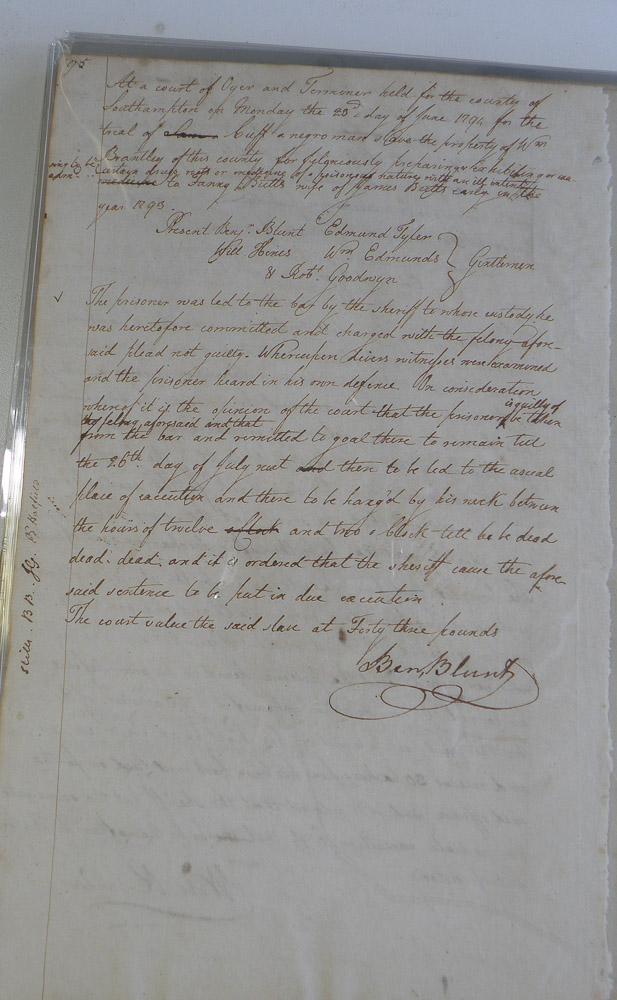 At a court of Oyer and Terminer held for the county of
Southampton on Monday the 23d day of June 1794 for the
trial of Sam Cuff a negro man slave the property of Wm
Brantley of this county for feloniously preparing & exhibiting
certain drugs roots or medicine of a poisonous nature with an ill intent
medicine to Fanny Butts wife of James Butts early in the
year 1793.
Present Benj. Blunt Edmund Tyler
Will Hines Wm Edmunds Gentlemen
& Robt. Goodwyn
The prisoner was led to the bar by the sheriff to whose custody he
was heretofore committed and charged with the felony afore-
said plead not guilty. Whereupon divers witnesses were examined
and the prisoner heard in his own defence. On consideration
is guilty of
whereof it is the opinion of the court that the prisoner be taken
the felony aforesaid and that
from the bar and remitted to goal there to remain till
the 26th day of July next and then to be led to the usual
place of execution and there to be hang'd by his neck between
the hours of twelve o clock and two o clock till he be dead
dead. dead. and it is ordered that the sheriff cause the afore-
said sentence to be put in due execution.
The court value the said slave at Forty three pounds
Ben, Blunt